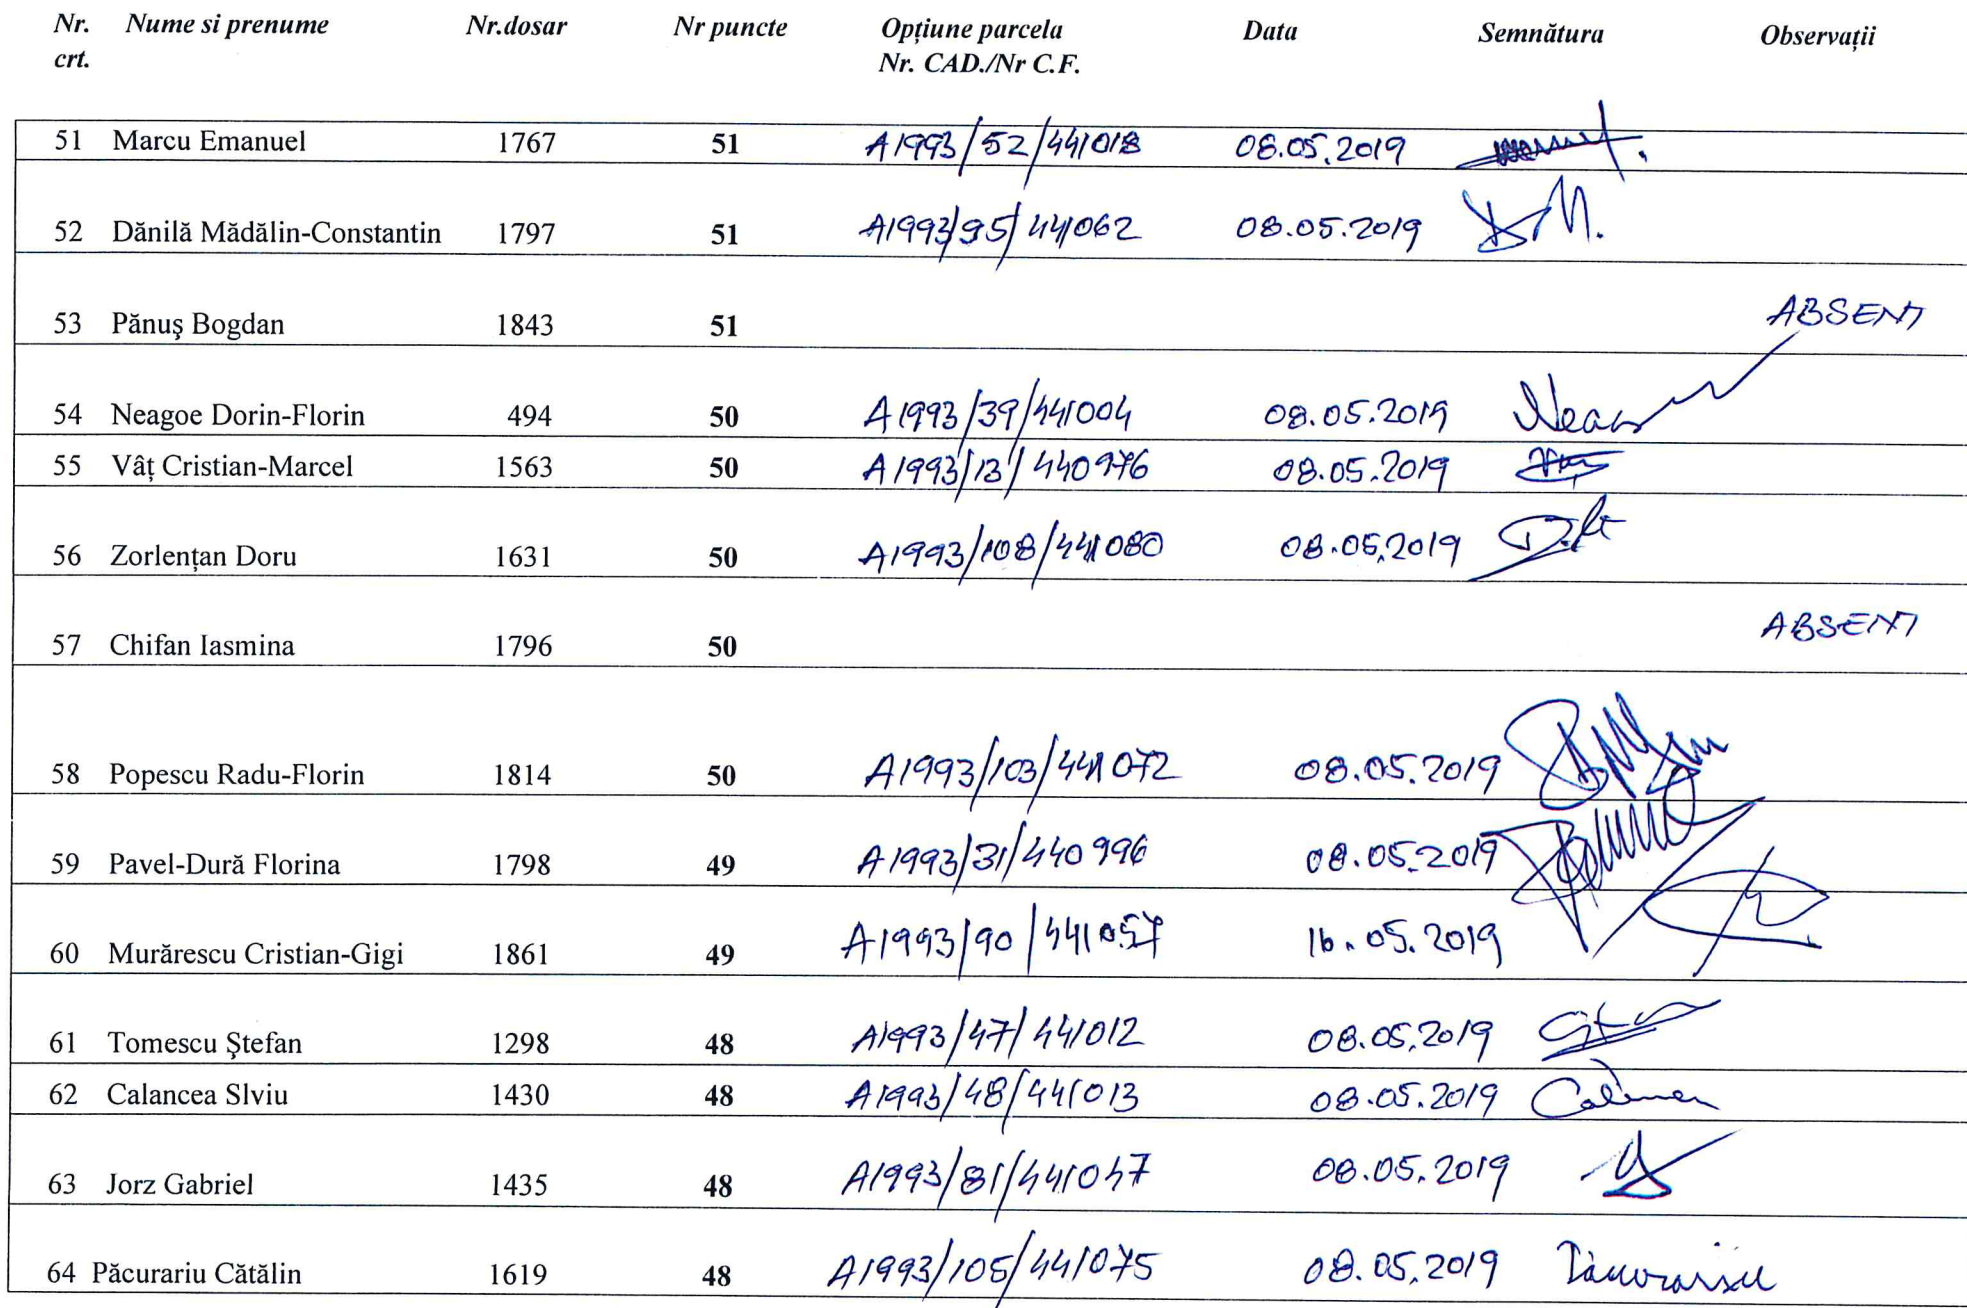 Nr. Nume si prenume Nr.dosar Nr puncte Opțiune parcela Data Semnătura Observații
crt. Nr. CAD./Nr C.F.
51 Marcu Emanuel 1767 51 A1993/52/441018 08.05.2019
52 Dănilă Mădălin-Constantin 1797 51 A1993/95/441062 08.05.2019
53 Pănuş Bogdan 1843 51 ABSENT
54 Neagoe Dorin-Florin 494 50 A1993/39/441004 08.05.2019
55 Vâț Cristian-Marcel 1563 50 A1993/13/440976 08.05.2019
56 Zorlențan Doru 1631 50 A1993/108/441080 08.05.2019
57 Chifan Iasmina 1796 50 ABSENT
58 Popescu Radu-Florin 1814 50 A1993/103/441072 08.05.2019
59 Pavel-Dură Florina 1798 49 A1993/31/440996 08.05.2019
60 Murărescu Cristian-Gigi 1861 49 A1993/90/441057 16.05.2019
61 Tomescu Ştefan 1298 48 A1993/47/441012 08.05.2019
62 Calancea Slviu 1430 48 A1993/48/441013 08.05.2019
63 Jorz Gabriel 1435 48 A1993/81/441047 08.05.2019
64 Păcurariu Cătălin 1619 48 A1993/105/441075 08.05.2019